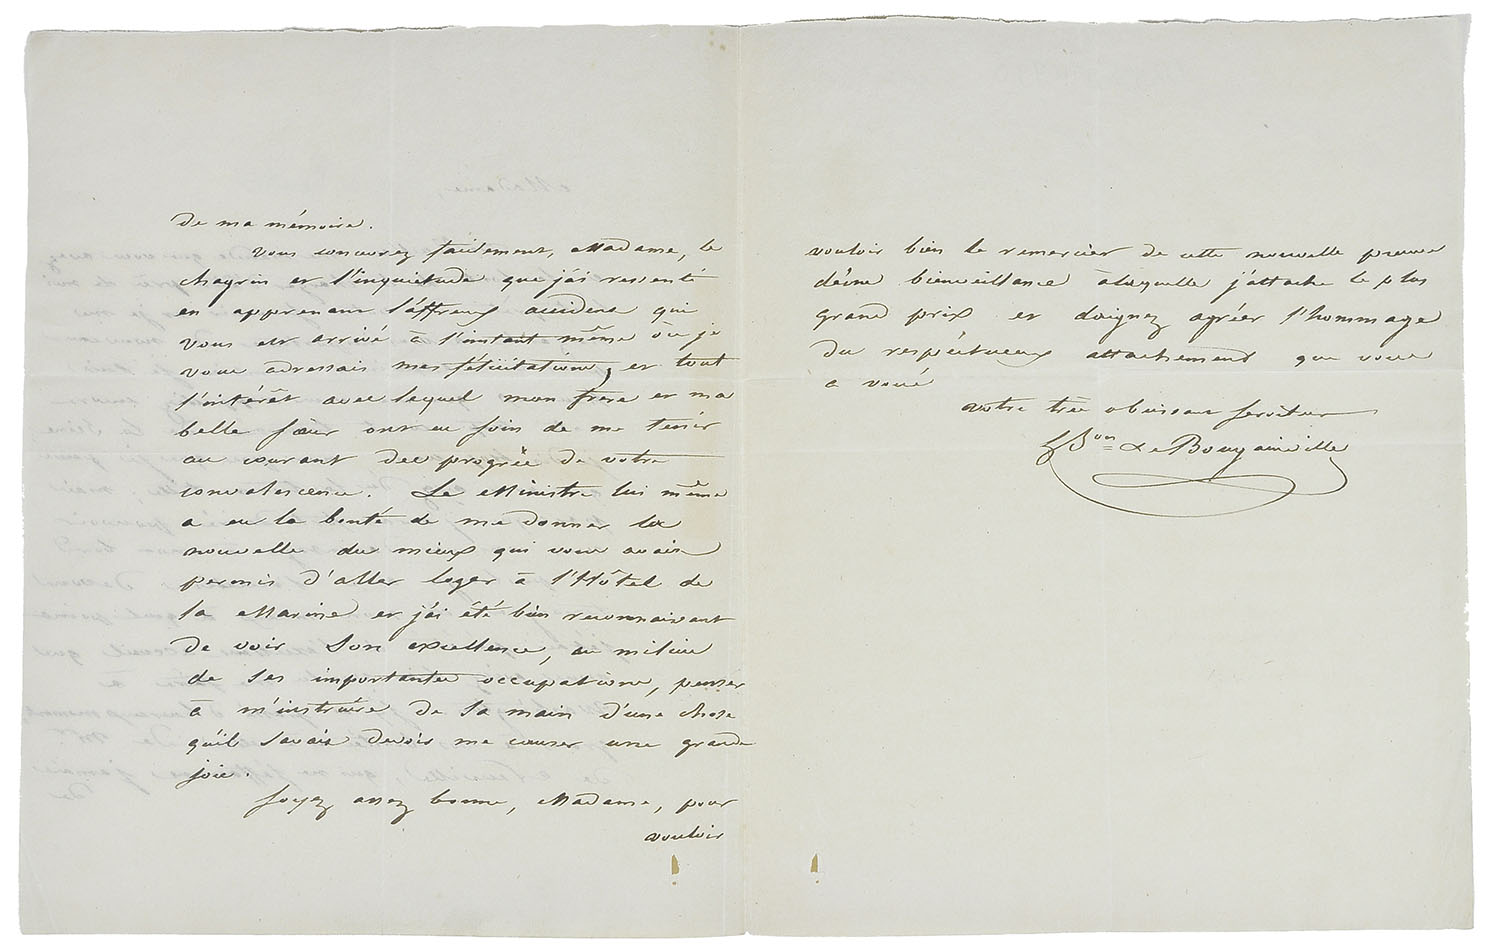 de ma mémoire.
Vous concevrez facilement, Madame, le
chagrin et l'inquiétude que j'ai ressenti
en apprenant l'affreux accident qui
vous est arrivé à l'instant même où je
vous adressais mes félicitations, et tout
l'intérêt avec lequel mon frere et ma
belle sœur ont eu soin de me tenir
au courant des progrès de votre
convalescence. Le Ministre lui même
a eu la bonté de me donner la
nouvelle du mieux qui vous avait
permis d'aller loger à l'Hôtel de
la Marine et j'ai été bien reconnaissant
de voir Son excellence, au milieu
de ses importantes occupations, penser
à m'instruire de sa main d'une chose
qu'il savait devoir me causer une grande
joie.
Soyez assez bonne, Madame, pour
vouloir
vouloir bien le remercier de cette nouvelle preuve
d'une bienveillance à laquelle j'attache le plus
grand prix et daignez agréer l'hommage
du respectueux attachement que vous
a voué
votre très obeissant serviteur
Bon De Bougainville